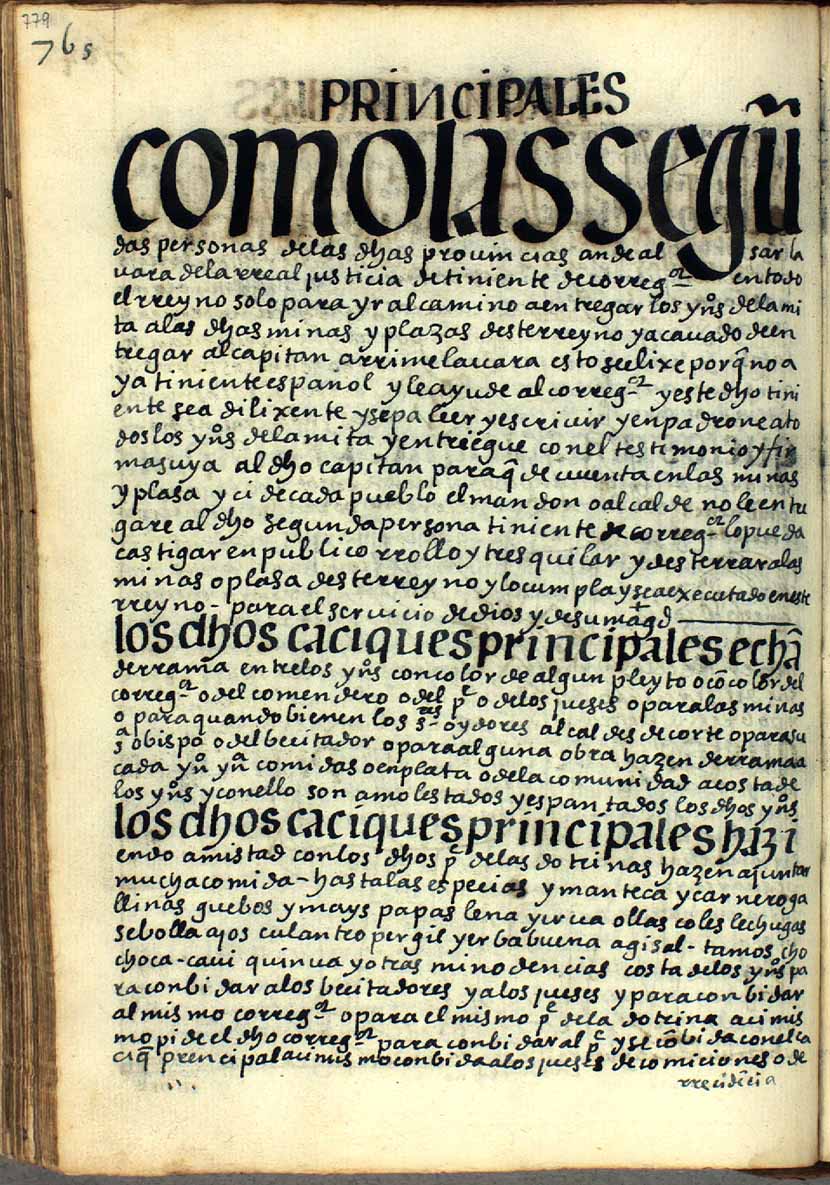 779
765
PRINCIPALES
como las segũ
das personas de las dhas provincias an de alsar la
uara de la rreal justicia de tiniente de correg.or en todo
el rreyno solo para yr al camino a entregar los yn̊s de la mi
ta a las dhas minas y plazas deste rreyno y acauado de en
tregar al capitan arrime la uara esto se elixe porq̃ no a
ya tiniente español y le ayude al correg.or y este dho tini
ente sea dilixente y sepa leer y escriuir y enpadrone a to
dos los yn̊s de la mita y entriegue con el testimonio y fir
ma suya al dho capitan para q̃ de cuuenta en las minas
y plasa y ci de cada pueblo el mandon o alcalde no le entre
gare al dho segunda persona tiniente de correg.or lo pueda
castigar en publico rrollo y tresquilar y desterrar a las
minas o plasa deste rreyno y lo cumpla y sea executado en este
rreyno - para el seruicio de dios y de su mag.d
los dhos caciques principales echã
derrama entre los yn̊s con color de algun pleyto o cõ color del
correg.or o del comendero o del p.e o de los jueses o para las minas
o para quando bienen los s.as oydores alcaldes de corte o para su
s.a obispo o del becitador o para alguna obra hazen derrama a
cada yn̊ yn.a comidas o en plata o de la comunidad a costa de
los yn̊s y con ello son amolestados y espantados los dhos yn̊s
los dhos caciques principales hazi
endo amistad con los dhos p.e de las dotrinas hazen ajuntar
mucha comida - hasta las especias y manteca y carnero ga
llinas guebos y mays papas lena yerua ollas coles lechugas
sebolla ajos culantro pergil yerba buena agi sal - tamos cho
choca - caui quinua y otras minodencias costa de los yn̊s pa
ra conbidar a los becitadores y a los jueses y para conbidar
al mismo correg.or o para el mismo p.e de la dotrina acimis
mo pide el dho correg.or para conbidar al p.e y se cõbida con el ca
ciq̃ prencipal acimismo conbida a los jueses de comiciones o de
rrecidẽcia